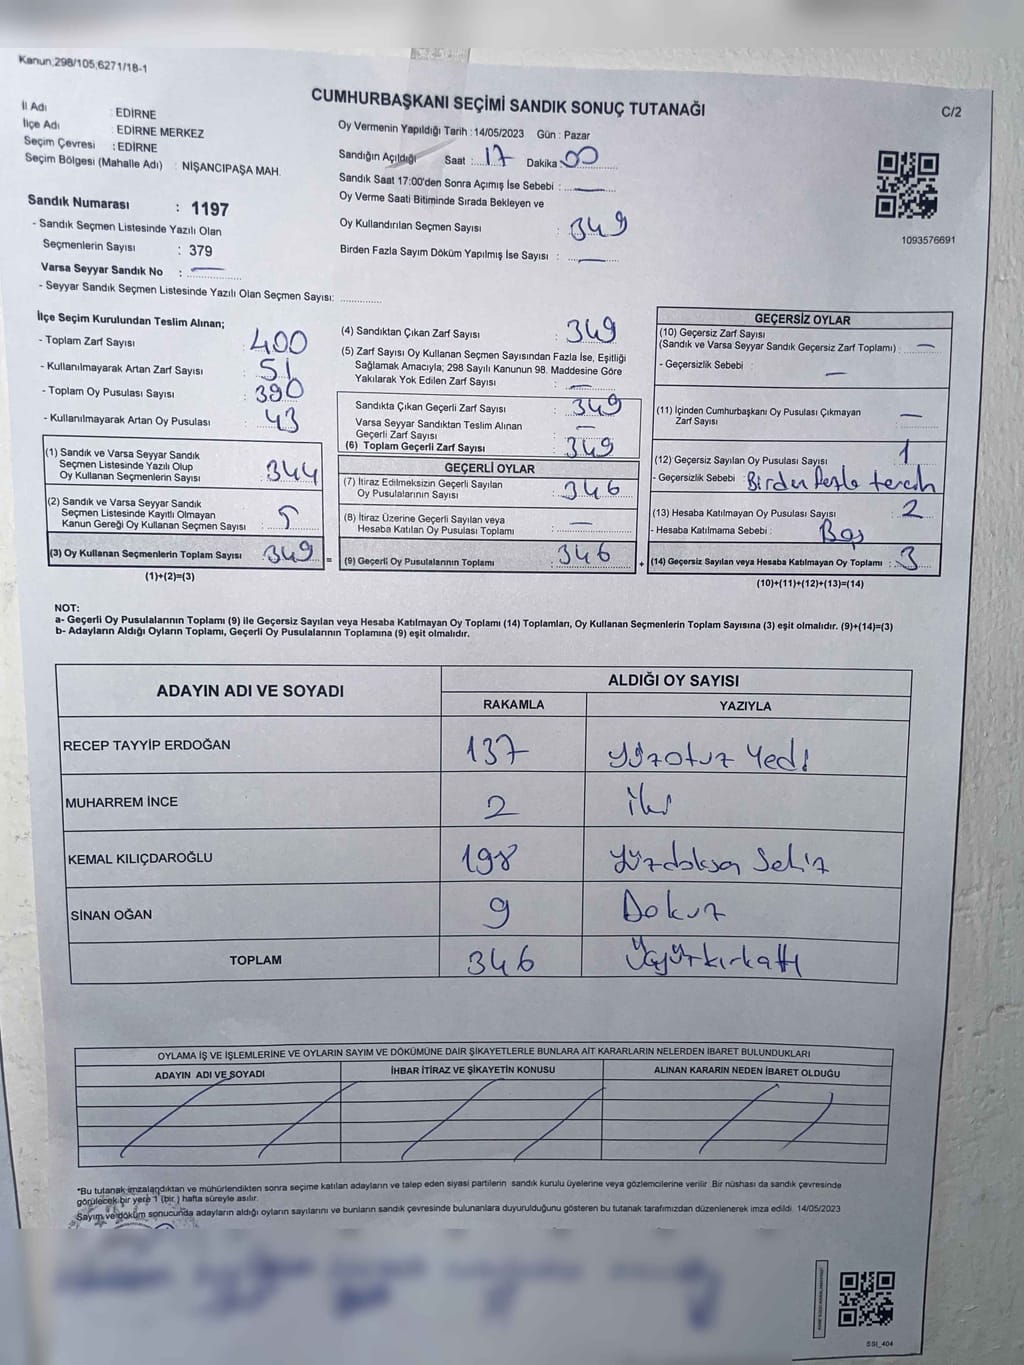 Kanun,298/105,6271/18-1
CUMHURBAŞKANI SEÇİMİ SANDIK SONUÇ TUTANAĞI
C/2
İl Adı : EDİRNE
İlçe Adı : EDİRNE MERKEZ
Seçim Çevresi : EDİRNE
Seçim Bölgesi (Mahalle Adı) : NİŞANCIPAŞA MAH.
Sandık Numarası : 1197
- Sandık Seçmen Listesinde Yazılı Olan
Seçmenlerin Sayısı : 379
Varsa Seyyar Sandık No : —
- Seyyar Sandık Seçmen Listesinde Yazılı Olan Seçmen Sayısı: ..............
Oy Vermenin Yapıldığı Tarih : 14/05/2023 Gün : Pazar
Sandığın Açıldığı Saat : 17 Dakika 00
Sandık Saat 17:00'den Sonra Açımış İse Sebebi : —
Oy Verme Saati Bitiminde Sırada Bekleyen ve
Oy Kullandırılan Seçmen Sayısı : 349
Birden Fazla Sayım Döküm Yapılmış İse Sayısı : —
1093576691
İlçe Seçim Kurulundan Teslim Alınan;
- Toplam Zarf Sayısı : 400
- Kullanılmayarak Artan Zarf Sayısı : 51
- Toplam Oy Pusulası Sayısı : 390
- Kullanılmayarak Artan Oy Pusulası : 43
(1) Sandık ve Varsa Seyyar Sandık
Seçmen Listesinde Yazılı Olup
Oy Kullanan Seçmenlerin Sayısı : 344
(2) Sandık ve Varsa Seyyar Sandık
Seçmen Listesinde Kayıtlı Olmayan
Kanun Gereği Oy Kullanan Seçmen Sayısı : 5
(3) Oy Kullanan Seçmenlerin Toplam Sayısı : 349 =
(1)+(2)=(3)
(4) Sandıktan Çıkan Zarf Sayısı : 349
(5) Zarf Sayısı Oy Kullanan Seçmen Sayısından Fazla İse, Eşitliği
Sağlamak Amacıyla; 298 Sayılı Kanunun 98. Maddesine Göre
Yakılarak Yok Edilen Zarf Sayısı : —
Sandıkta Çıkan Geçerli Zarf Sayısı : 349
Varsa Seyyar Sandıktan Teslim Alınan
Geçerli Zarf Sayısı : —
(6) Toplam Geçerli Zarf Sayısı : 349
GEÇERLİ OYLAR
(7) İtiraz Edilmeksizin Geçerli Sayılan
Oy Pusulalarının Sayısı : 346
(8) İtiraz Üzerine Geçerli Sayılan veya
Hesaba Katılan Oy Pusulası Toplamı : —
(9) Geçerli Oy Pusulalarının Toplamı : 346 +
GEÇERSİZ OYLAR
(10) Geçersiz Zarf Sayısı
(Sandık ve Varsa Seyyar Sandık Geçersiz Zarf Toplamı) : —
- Geçersizlik Sebebi : —
(11) İçinden Cumhurbaşkanı Oy Pusulası Çıkmayan
Zarf Sayısı : —
(12) Geçersiz Sayılan Oy Pusulası Sayısı : 1
- Geçersizlik Sebebi : Birden Fazla tercih
(13) Hesaba Katılmayan Oy Pusulası Sayısı : 2
- Hesaba Katılmama Sebebi : Boş
(14) Geçersiz Sayılan veya Hesaba Katılmayan Oy Toplamı : 3
(10)+(11)+(12)+(13)=(14)
NOT:
a- Geçerli Oy Pusulalarının Toplamı (9) ile Geçersiz Sayılan veya Hesaba Katılmayan Oy Toplamı (14) Toplamları, Oy Kullanan Seçmenlerin Toplam Sayısına (3) eşit olmalıdır. (9)+(14)=(3)
b- Adayların Aldığı Oyların Toplamı, Geçerli Oy Pusulalarının Toplamına (9) eşit olmalıdır.
ADAYIN ADI VE SOYADI ALDIĞI OY SAYISI
RAKAMLA YAZIYLA
RECEP TAYYİP ERDOĞAN 137 Yüzotuz Yedi
MUHARREM İNCE 2 İki
KEMAL KILIÇDAROĞLU 198 Yüzdoksan Sekiz
SİNAN OĞAN 9 Dokuz
TOPLAM 346 Üçyüzkırkaltı
OYLAMA İŞ VE İŞLEMLERİNE VE OYLARIN SAYIM VE DÖKÜMÜNE DAİR ŞİKAYETLERLE BUNLARA AİT KARARLARIN NELERDEN İBARET BULUNDUKLARI
ADAYIN ADI VE SOYADI İHBAR İTİRAZ VE ŞİKAYETİN KONUSU ALINAN KARARIN NEDEN İBARET OLDUĞU
*Bu tutanak imzalandıktan ve mühürlendikten sonra seçime katılan adayların ve talep eden siyasi partilerin sandık kurulu üyelerine veya gözlemcilerine verilir. Bir nüshası da sandık çevresinde
görülecek bir yere 1 (bir ) hafta süreyle asılır.
Sayım ve döküm sonucunda adayların aldığı oyların sayılarını ve bunların sandık çevresinde bulunanlara duyurulduğunu gösteren bu tutanak tarafımızdan düzenlenerek imza edildi. 14/05/2023
SSI_404